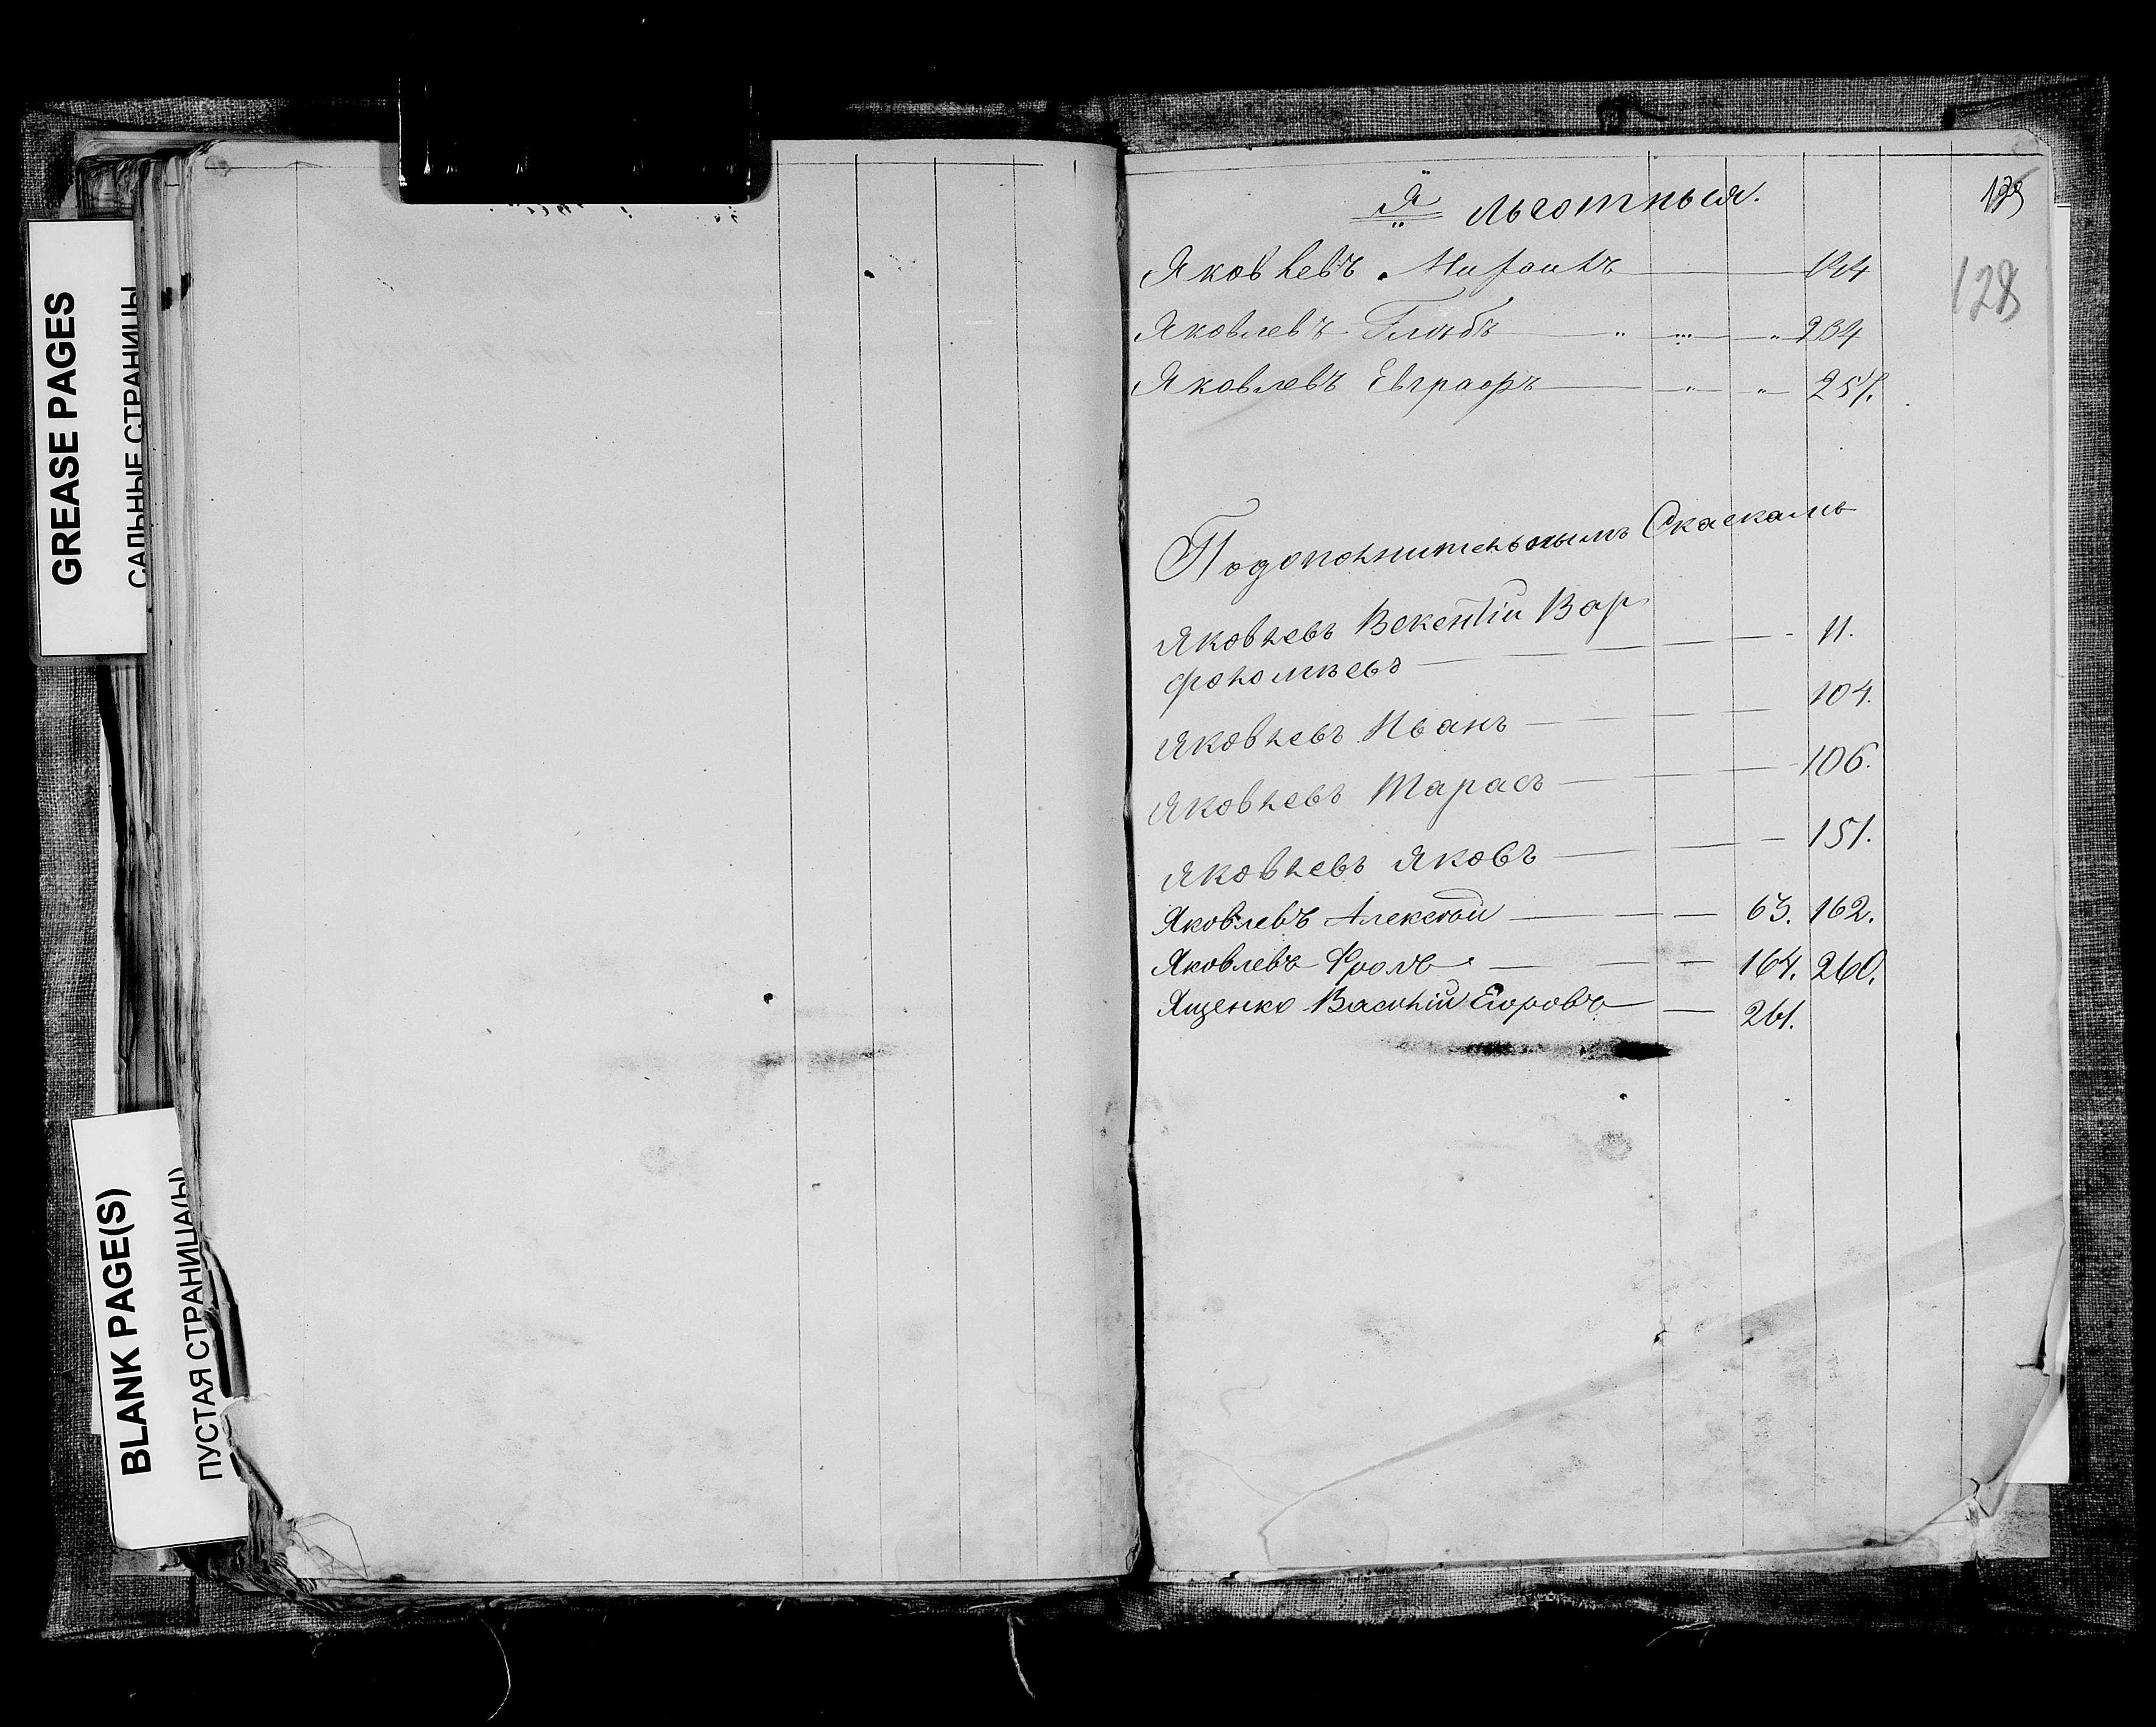 GREASE PAGES
САЛЬНЫЕ СТРАНИЦЫ
BLANK PAGE(S)
ПУСТАЯ СТРАНИЦА(Ы)
Я льготныя.
128
Яковлевъ
Яковлевъ Глѣбъ 234
Яковлевъ Евграфъ 257.
По дополнительнымъ Сказкамъ
Яковлевъ Векентій Вар
фоломѣевъ 11.
Яковлевъ Иванъ 104.
Яковлевъ Тарасъ 106.
Яковлевъ Яковъ 151.
Яковлевъ Алексѣй 63. 162.
Яковлевъ Фролъ 164. 260.
Ященко Василій Егоровъ 261.